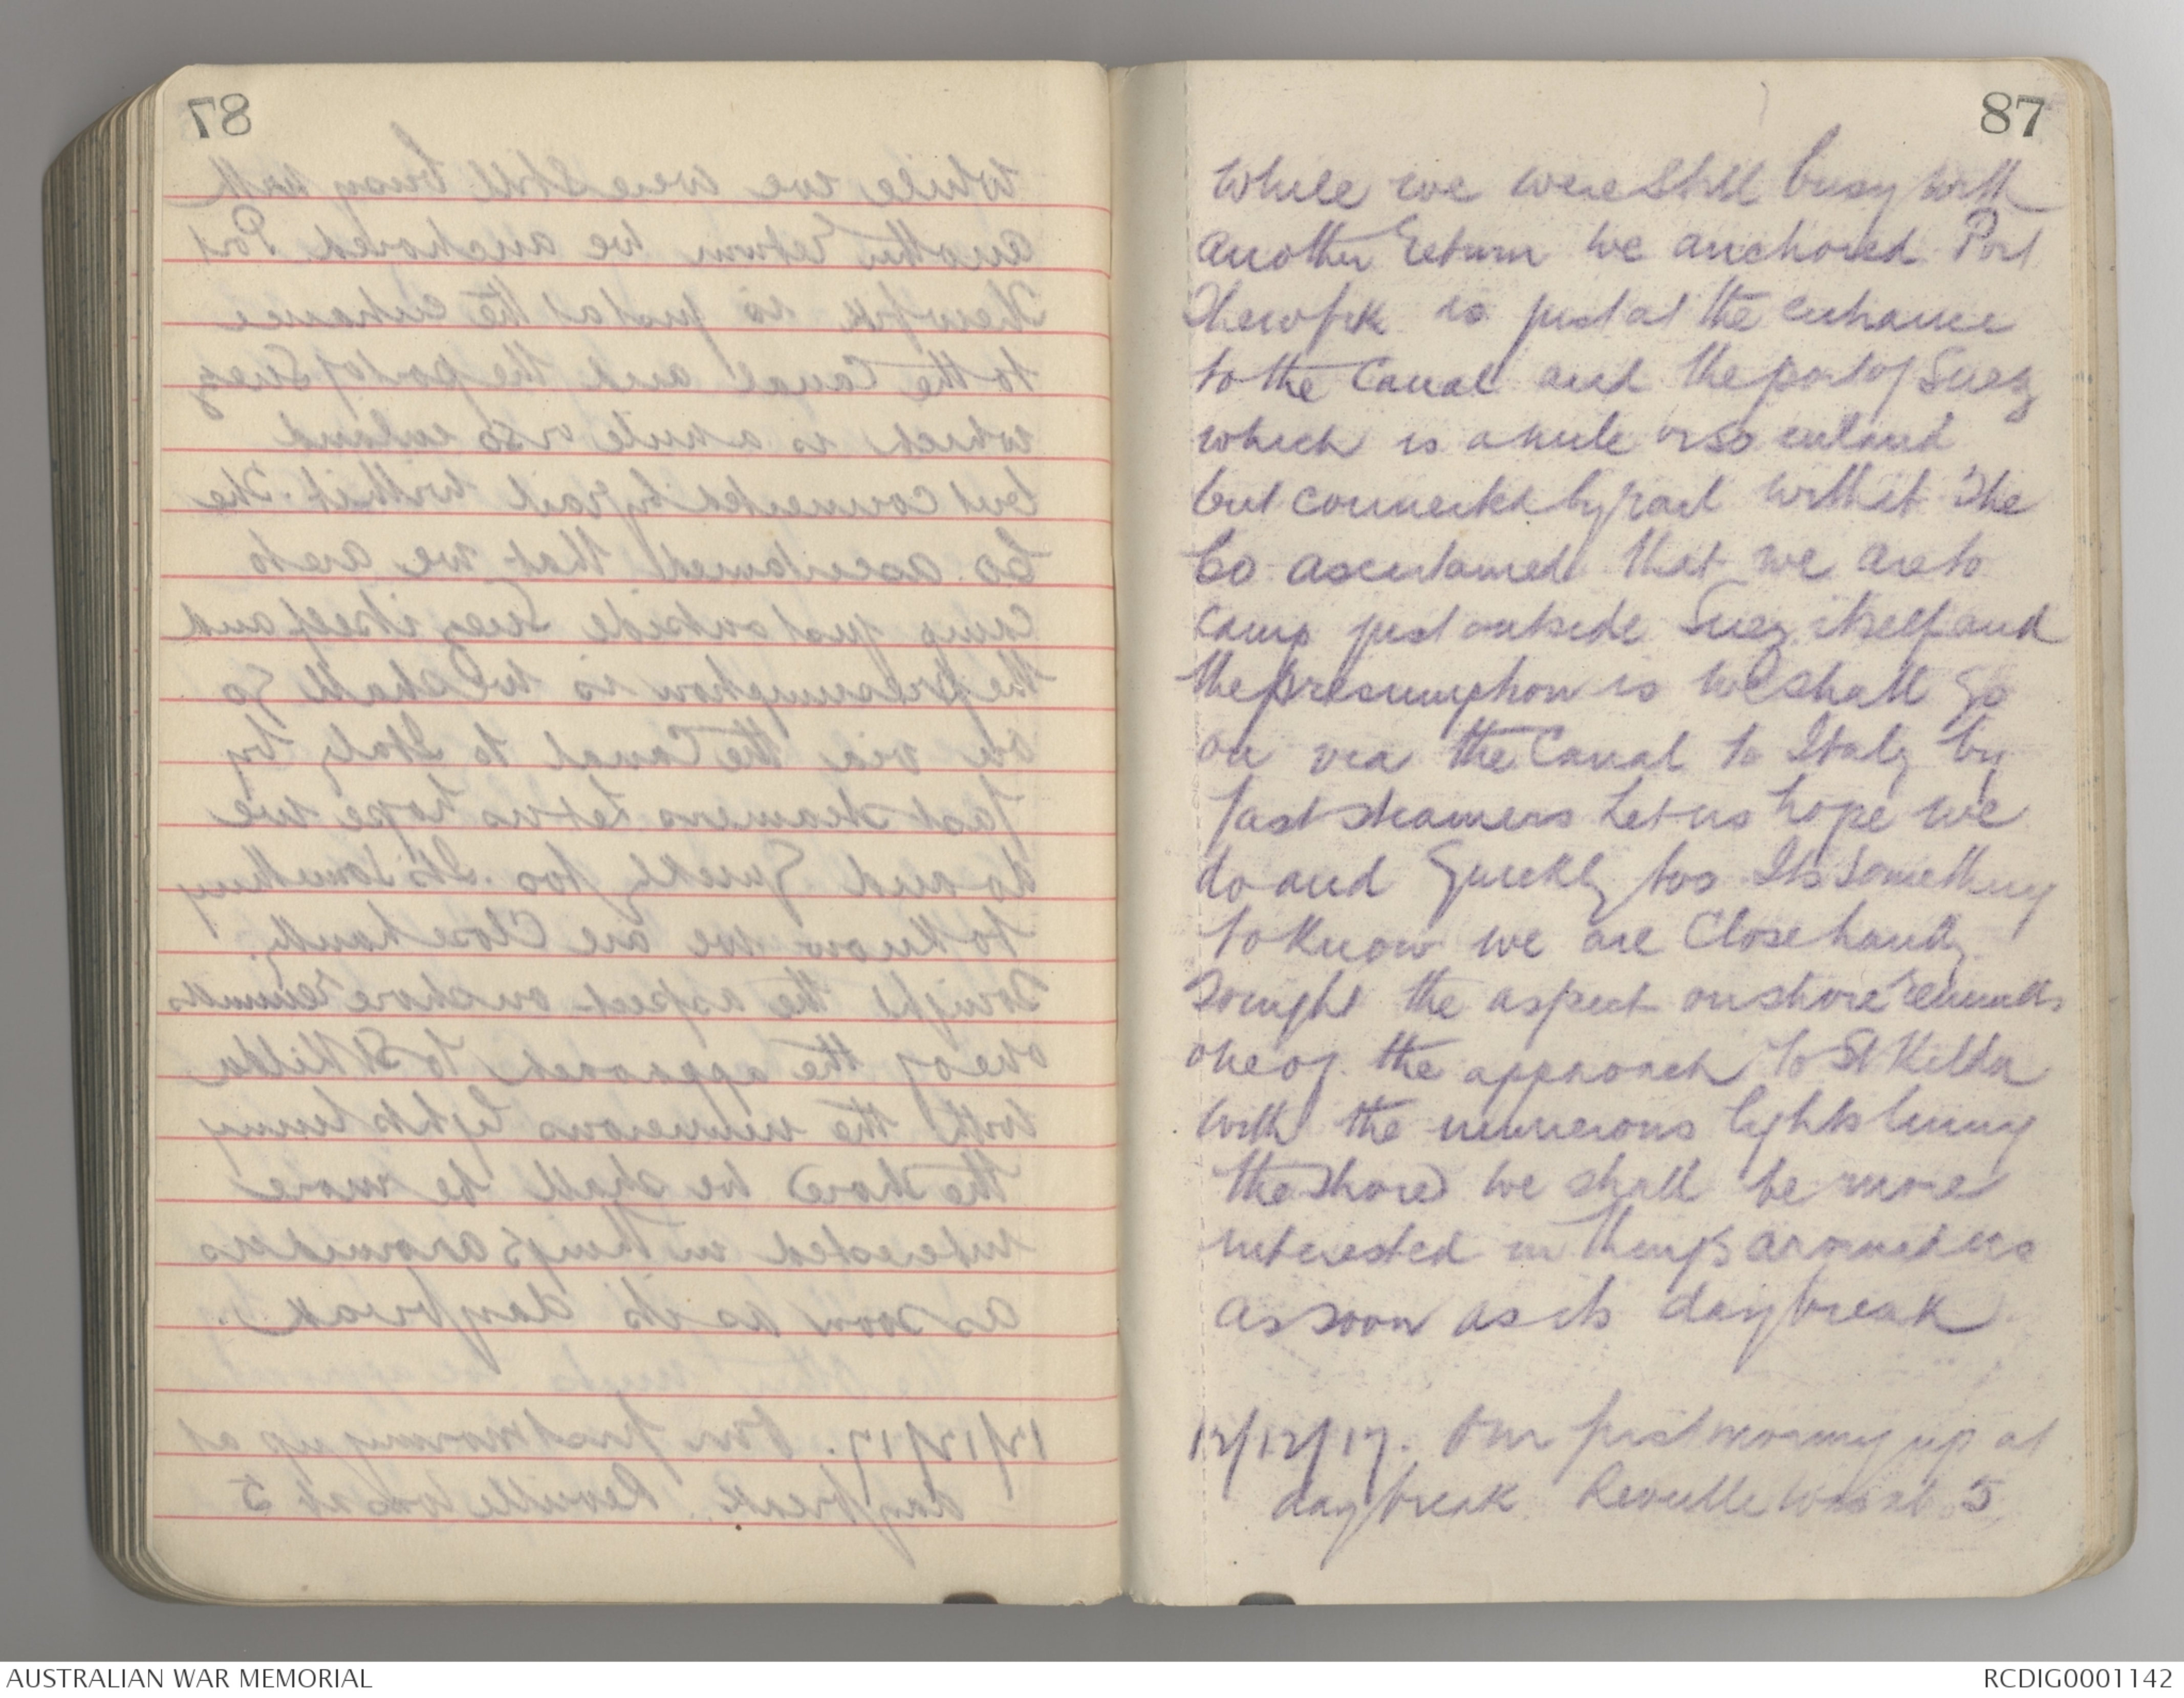 87
While we were still busy with
another return we anchored. Port
Thewfik is just at the entrance
to the Canal and the port of Suez
which is a mile or so inland
but connected by rail with it. The
Co. ascertained that we are to
camp just outside Suez itself and
the presumption is we shall go
on via the Canal to Italy by
fast steamers. Let us hope we
do and quickly too. Its something
to know we are close handy.
Tonight the aspect on shore reminds
one of the approach to St Kilda
with the numerous lights lining
the shore. We shall be more
interested in things around us
as soon as its daybreak.
12/12/17. Our first morning up at
daybreak. Reveille was at 5
AUSTRALIAN WAR MEMORIAL
RCDIG0001142